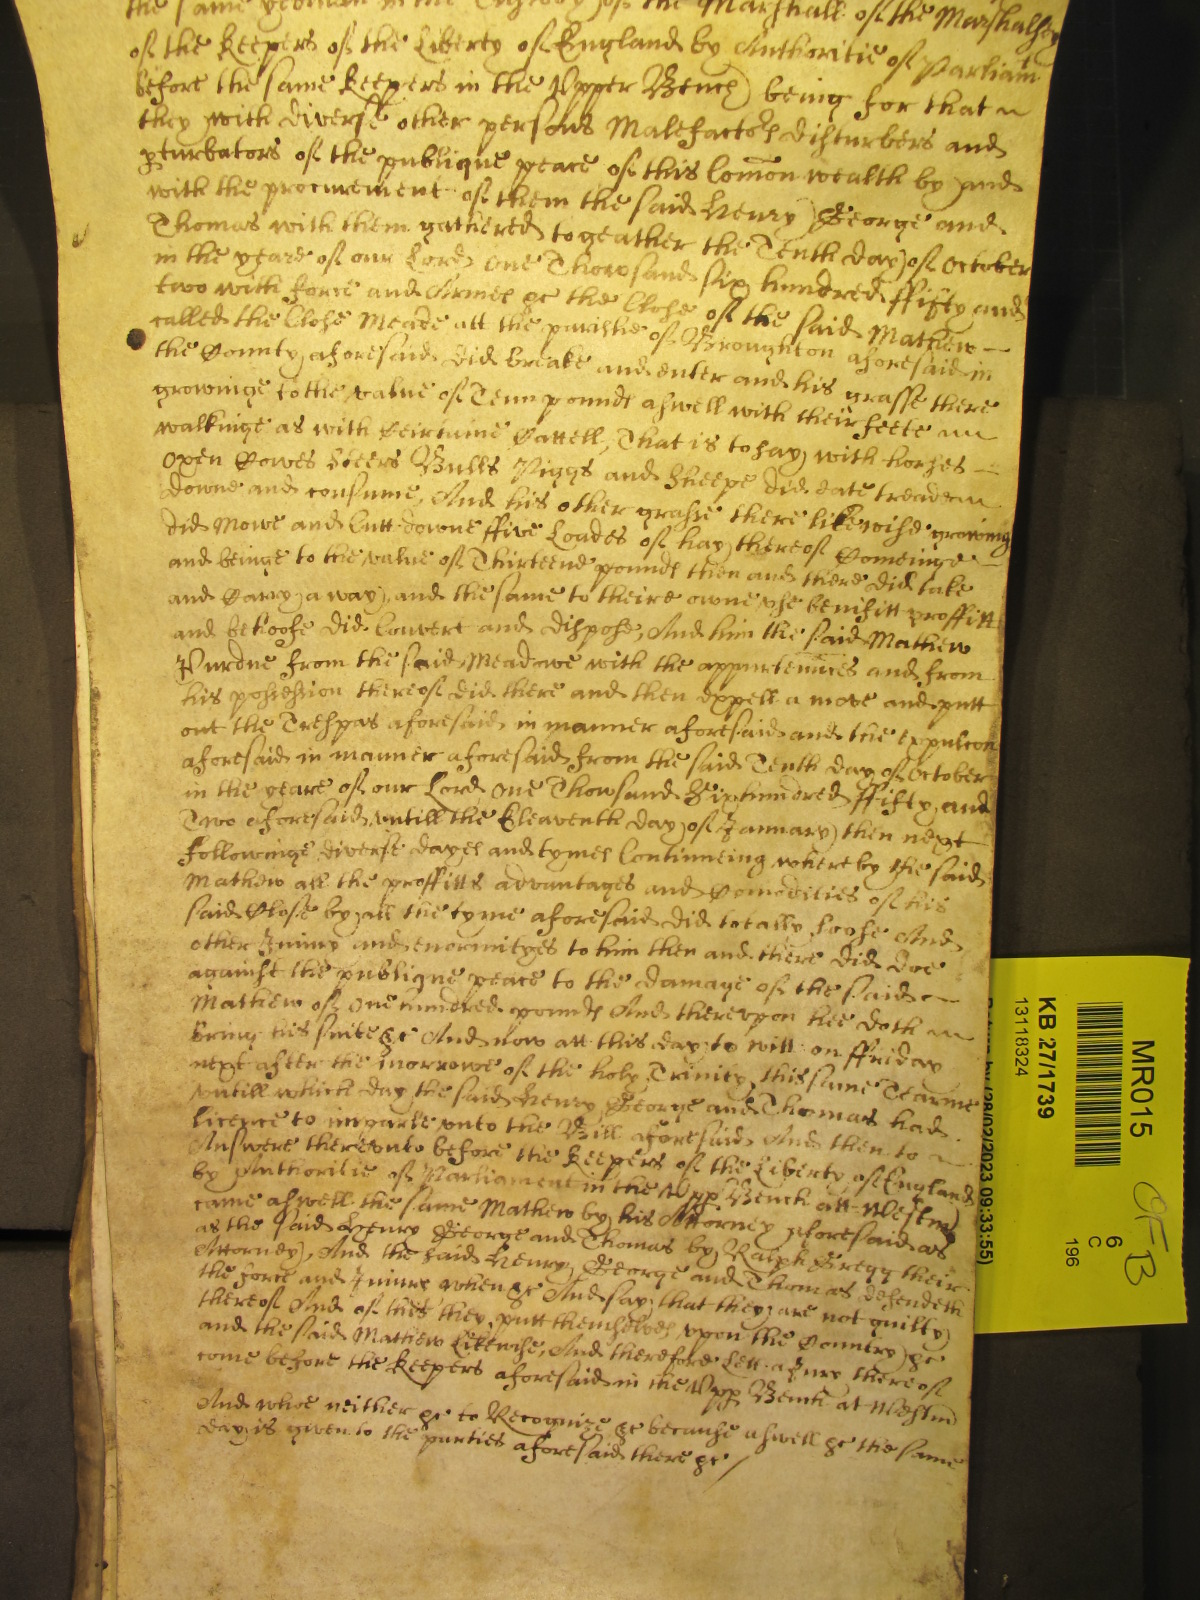 the same yeoman in the Custody of the Marshall of the Marshalsey
of the keepers of the Liberty of England by Authoritie of Parliamt
before the same keepers in the Upper Bench) being for that
they with diverse other persons Malefactors disturbers and
pturbators of the publique peace of this Comon wealth by and
with the procurement of them the said Henry George and
Thomas with them gathered togeather the Tenth day of October
in the yeare of our Lord One Thowsand six hundred ffifty and
two with force and Armes &c the Close of the said Mathew
called the Close Meade att the parishe of Broughton aforesaid in
the County aforesaid did breake and enter and his grasse there
growinge to the value of Tenn pounds aswell with their feete
walkinge as with Certaine Cattell, That is to say with horses
Oxen Cowes Steers Bulls Piggs and Sheepe did eate treade
downe and consume, And his other grasse there likewise growing
did Mowe and Cutt downe ffive Loades of hay thereof Comeinge
and beinge to the value of Thirteene pounds then and there did take
and Carry a way, and the same to theire owne use benifitt proffitt
and behoofe did Convert and dispose, And him the said Mathew
Purdue from the said Meadowe with the appurtennces and from
his possession thereof did there and then expell a move and putt
out the Trespas aforesaid in manner aforesaid and the expulcon
aforesaid in manner aforesaid from the said Tenth day of October
in the yeare of our Lord One Thowsand Sixhundred ffifty and
Two aforesaid untill the Eleaventh day of January then next
followinge diverse dayes and tymes Continueing whereby the said
Mathew all the proffitts advantages and Comodities of his
said Close by all the tyme aforesaid did totally loose And
other Iniury and enormityes to him then and there did doe
against the publique peace to the damage of the said
Mathew of One hundred pounds And thereupon hee doth
bring his suite &c And now att this day to witt on ffriday
next after the morrowe of the holy Trinity this same Tearme
untill which day the said Henry George and Thomas had
licence to imparle unto the Bill aforesaid And then to
Answere thereunto before the keepers of the Liberty of England
by Authoritie of Parliament in the Upp Bench att Westmr
came aswell the same Mathew by his Attorney aforesaid as
as the said Henry George and Thomas by Ralph Gregg their
Attorney, And the said Henry George and Thomas defendeth
the force and Iniury when &c And say that they are not guilty
thereof And of this they putt themselves upon the Country &c
and the said Mathew Likewise, And therefore Lett a Jury thereof
come before the keepers aforesaid in the Upp Bench at Westmr
And whoe neither &c to Recognize &c because aswell &c the same
day is given to the parties aforesaid there &c
MR015
KB 27/1739
13118324
(28/02/2023 09:33:55)
6
C
196